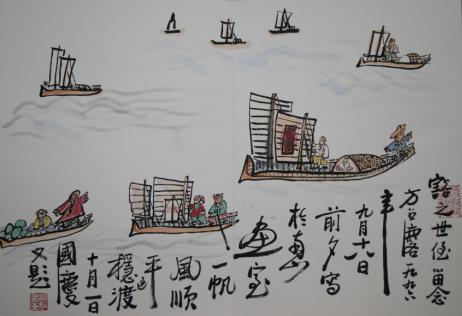 豁之世侄留念
方召麐一九九六
年
九月十八日
前夕寫
於
画室
一帆
風順
平
穩渡
十月一日
國慶
又題